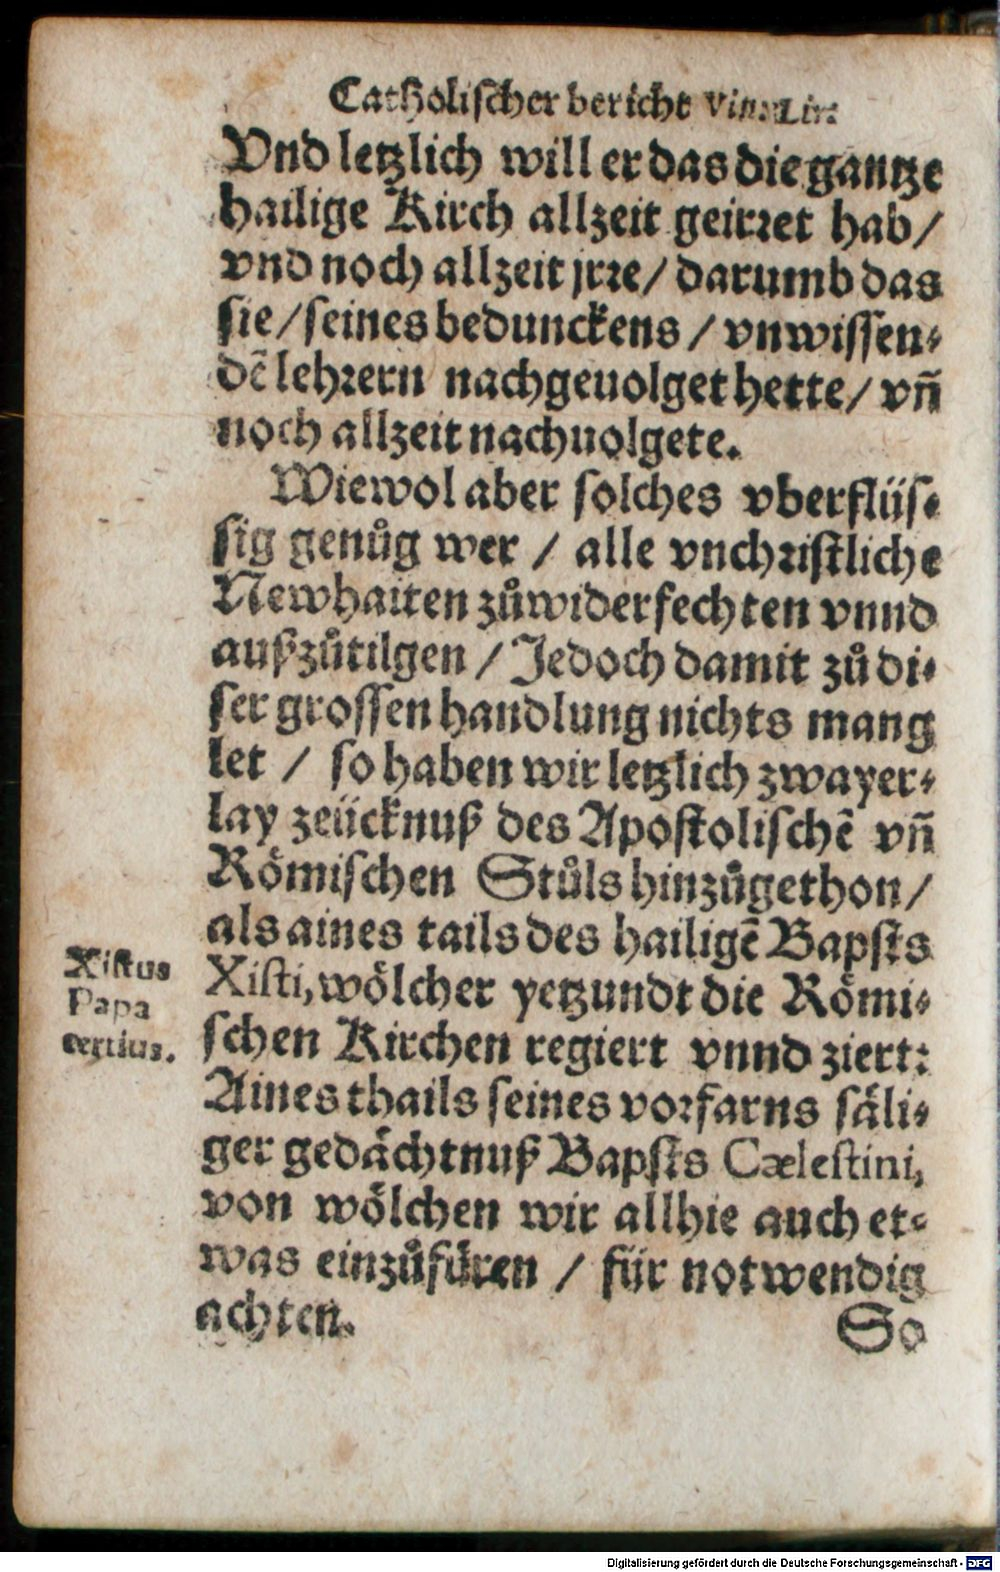 Catholischer bericht Vin: Lir:
Vnd letzlich will er das die gantze
hailige Kirch allzeit geirret hab /
vnd noch allzeit jrre / darumb das
sie / seines bedunckens / vnwissen⸗
dē lehrern nachgeuolget hette / vñ
noch allzeit nachuolgete.
Wiewol aber solches vberflüs⸗
sig genůg wer / alle vnchristliche
Newhaiten zůwiderfechten vnnd
außzůtilgen / Jedoch damit zů di⸗
ser grossen handlung nichts mang
let / so haben wir letzlich zwayer⸗
lay zeücknuß des Apostolischē vñ
Römischen Stůls hinzůgethon /
als aines tails des hailigē Bapsts
Xisti, wölcher yetzundt die Römi⸗
schen Kirchen regiert vnnd ziert:
Aines thails seines vorfarns säli⸗
ger gedächtnuß Bapsts Cælestini,
von wölchen wir allhie auch et⸗
was einzůfüren / für notwendig
achten.
So
Xistus
Papa
tertius.
Digitalisierung gefördert durch die Deutsche Forschungsgemeinschaft - DFG